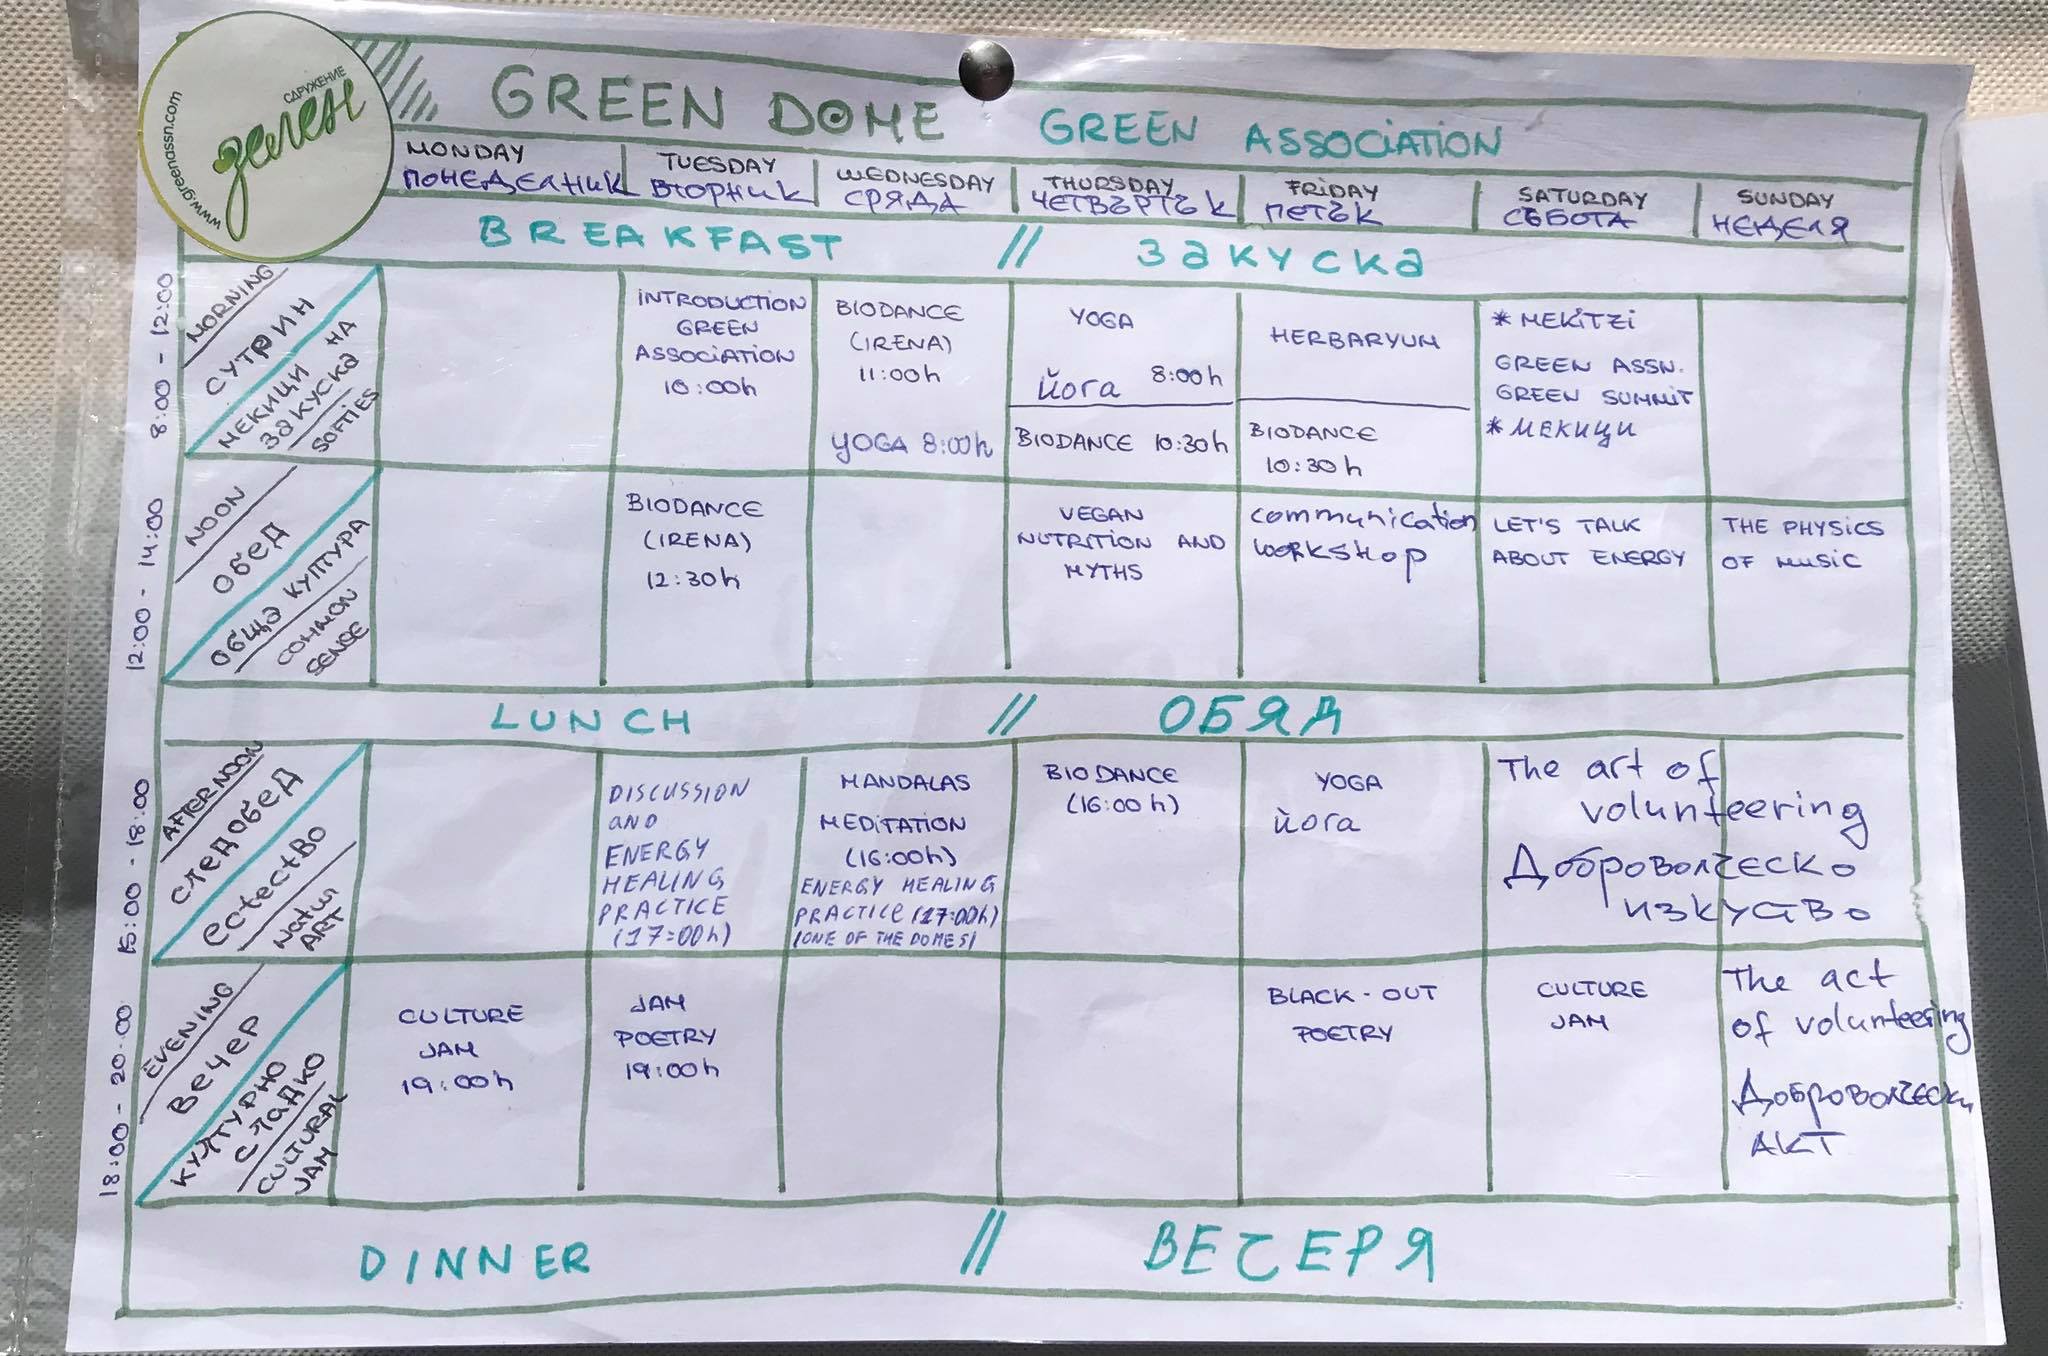 СДРУЖЕНИЕ
зелен
www.greenassn.com
GREEN DOME GREEN ASSOCIATION
MONDAY
ПОНЕДЕЛНИК
TUESDAY
ВТОРНИК
WEDNESDAY
СРЯДА
THURSDAY
ЧЕТВЪРТЪК
FRIDAY
ПЕТЪК
SATURDAY
СЪБОТА
SUNDAY
НЕДЕЛЯ
BREAKFAST // ЗАКУСКА
8:00 - 12:00
MORNING
СУТРИН
МЕКИЦИ НА
ЗАКУСКА
SOFTIES
INTRODUCTION
GREEN
ASSOCIATION
10:00h
BIODANCE
(IRENA)
11:00h
YOGA 8:00h
YOGA
Йога 8:00h
BIODANCE 10:30h
HERBARYUM
BIODANCE
10:30h
* MEKITZI
GREEN ASSN.
GREEN SUMMIT
* МЕКИЦИ
12:00 - 14:00
NOON
ОБЕД
ОБЩА КУЛТУРА
COMMON
SENSE
BIODANCE
(IRENA)
12:30h
VEGAN
NUTRITION AND
MYTHS
communication
workshop
LET'S TALK
ABOUT ENERGY
THE PHYSICS
OF MUSIC
LUNCH // ОБЯД
15:00 - 18:00
AFTERNOON
СЛЕДОБЕД
ЕСТЕСТВО
ART
DISCUSSION
AND
ENERGY
HEALING
PRACTICE
(17:00h)
MANDALAS
MEDITATION
(16:00h)
ENERGY HEALING
PRACTICE (17:00h)
(ONE OF THE DOMES)
BIODANCE
(16:00h)
YOGA
Йога
The art of
volunteering
Доброволческо
изкуство
18:00 - 20:00
EVENING
ВЕЧЕР
КУЛТУРНО
СЛАДКО
CULTURAL
JAM
CULTURE
JAM
19:00h
JAM
POETRY
19:00h
BLACK-OUT
POETRY
CULTURE
JAM
The act
of volunteering
Доброволчески
АКТ
DINNER // ВЕЧЕРЯ